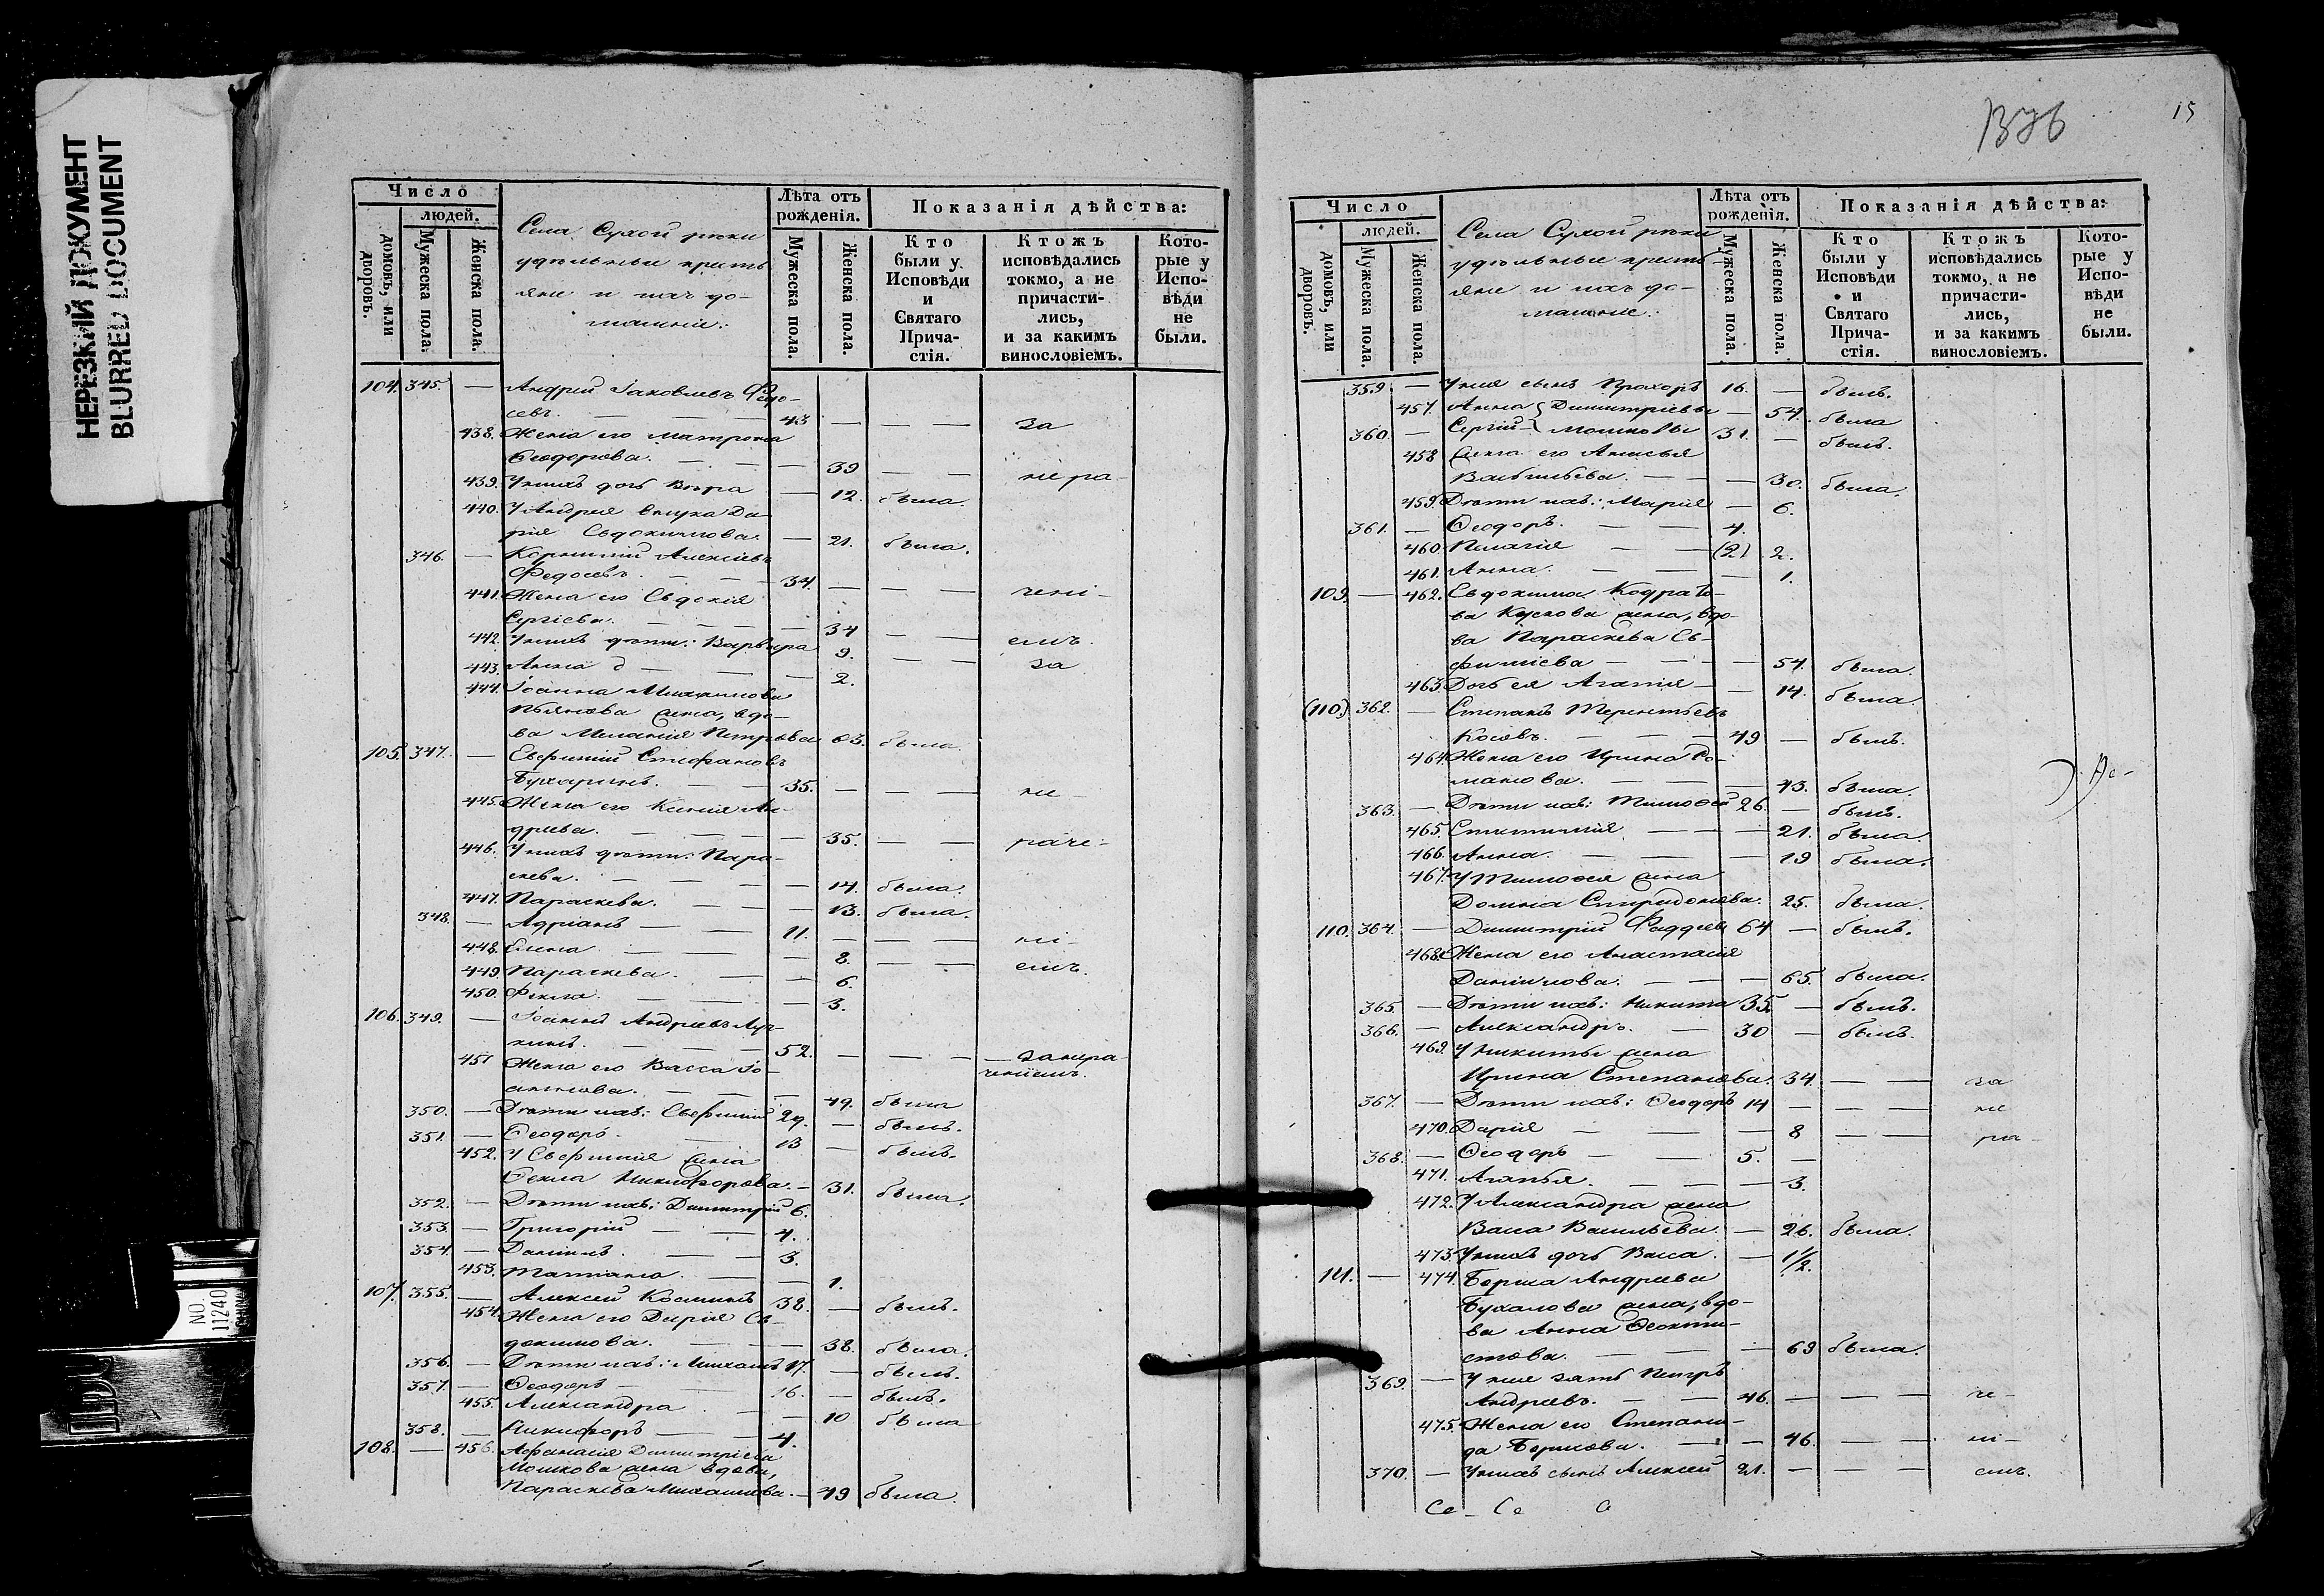 НЕРЕЗКИЙ ДОКУМЕНТ
BLURRED DOCUMENT
NO.
11240
Число
людей.
домовъ, или дворовъ.
Мужеска пола.
Женска пола.
Села Сухой рѣки
удѣльные кресть
яне и ихъ до-
машніе:
Лѣта отъ рожденія.
Мужеска пола.
Женска пола.
Показанія дѣйства:
Кто были у Исповѣди и Святаго Прича- стія.
Ктожъ исповѣдались токмо, а не причасти- лись, и за какимъ винословіемъ.
Кото- рые у Испо- вѣди не были.
104. 345. — Андрей Іаковлевъ Федо-
сѣевъ. — — 43 — — — за
438. Жена его Матрона
Ѳеодорова. — — — 39 — — нера-
439. У нихъ дочь Вѣра — 12. была.
440. У Андрея внука Да-
рія Евдокимова. — 21. была.
346. — Корнилій Алексѣевъ
Федосѣевъ. — — 34. — — — чені-
441. Жена его Евдокія
Сергіева. — — — 34 — — емъ.
442. У нихъ дѣти: Варвара 9. — — за
443. Анна — — 2.
444. Іоанна Михаилова
жена, вдо-
ва Меланія Петрова 63. была.
105. 347. — Евфимій Стефановъ
Бухаринъ. — — 35. — — — не-
445. Жена его Ксенія Ан-
дреева. — — — — 35. — — раче-
446. У нихъ дѣти: Пара-
скева. — — — — 14. была.
447. Параскева. — — — 13. была.
348. — Адріанъ — — 11. — — — ні-
448. Елена — — — 8. — — емъ.
449. Параскева. — — — 6.
450. Ѳекла. — — — 3.
106. 349. — Іоаннъ Андреевъ Луч-
кинъ. — — — 52. — — — — занера-
ченіемъ.
451 Жена его Васса Іо-
аннова. — — — 49. была
350. — Дѣти ихъ: Евфимій 29. — былъ.
351. — Ѳеодоръ. — 13 — былъ.
452. У Евфимія жена
Ѳекла Никифорова. — 31. была.
352. — Дѣти ихъ: Димитрій 6.
353. — Григорій — — 4.
354. — Даніилъ. — — 3.
453. Татіана. — — 1.
107. 355. — Алексей Косминъ 38. — былъ.
454. Жена его Дарія Ев-
докимова. — — 38. была.
356. — Дѣти ихъ: Михаилъ 17. — былъ.
357. — Ѳеодоръ — 16. — былъ.
455. Александра — — 10 была
358. — Никифоръ — — 4.
108. — 456. Афанасія Димитріева
Мошкова жена вдова,
Параскева Михаилова. — 49 была.
15
Число
людей.
домовъ, или дворовъ.
Мужеска пола.
Женска пола.
Села Сухой рѣки
удѣльные кресть-
яне и ихъ до-
машніе:
Лѣта отъ рожденія.
Мужеска пола.
Женска пола.
Показанія дѣйства:
Кто были у Исповѣди и Святаго Прича- стія.
Ктожъ исповѣдались токмо, а не причасти- лись, и за какимъ винословіемъ.
Кото- рые у Испо- вѣди не были.
359 — У нея сынъ Прохоръ 16. — былъ.
457. Анна Димитріевы — 54. была
360. — Сергій Мошковы 31. — былъ.
458 Жена его Анисья
Васильева. — — — 30. была.
459. Дѣти ихъ: Марія — 6.
361. — Ѳеодоръ. — — 4.
460. Пелагія — — (2) 2.
461. Анна. — — — 1.
109. — 462. Евдокима Кодрато-
ва Кускова жена, вдо-
ва Параскева Ев-
фиміева — — — 54. была.
463. Дочь ея Агапія — — 14. была.
(110.) 362. — Степанъ Терентьевъ
Косовъ. — — — 49 — былъ.
464. Жена его Ирина Ро-
манова. — — — 43. была.
363. — Дѣти ихъ: Тимоѳей 26. — былъ.
465. — — — 21. была
466. Анна. — — — 19 была.
467. У Тимоѳея жена
Домна Спиридонова. 25. была.
110. 364. — Димитрій Фаддеевъ 64 — былъ.
468. Жена его Анастасія
Даніилова. — — — 65. была.
365. — Дѣти ихъ: Никита 35. — былъ.
366. — Александръ. — 30 — былъ.
469. У Никиты жена
Ирина Степанова. 34. — — за
367. — Дѣти ихъ: Ѳеодоръ 14 — — — не
470. Дарія — — — 8 — — ра-
368. — Ѳеодоръ — — 5. —
471. Агапья. — — — 3.
472. У Александра жена
Васса Васильева. — 26. была.
473. У нихъ дочь Васса. — 1 1/2.
111. — 474. Бориса Андреева
Бухалова жена, вдо-
ва Анна Ѳеокти-
стова. — — — 69 была.
369. — У нея зять Петръ
Андреевъ. — — 46. — — — че-
475. Жена его Степани-
да Борисова. — — 46. — — ні-
370. — У нихъ сынъ Алексей 21. — — — емъ.